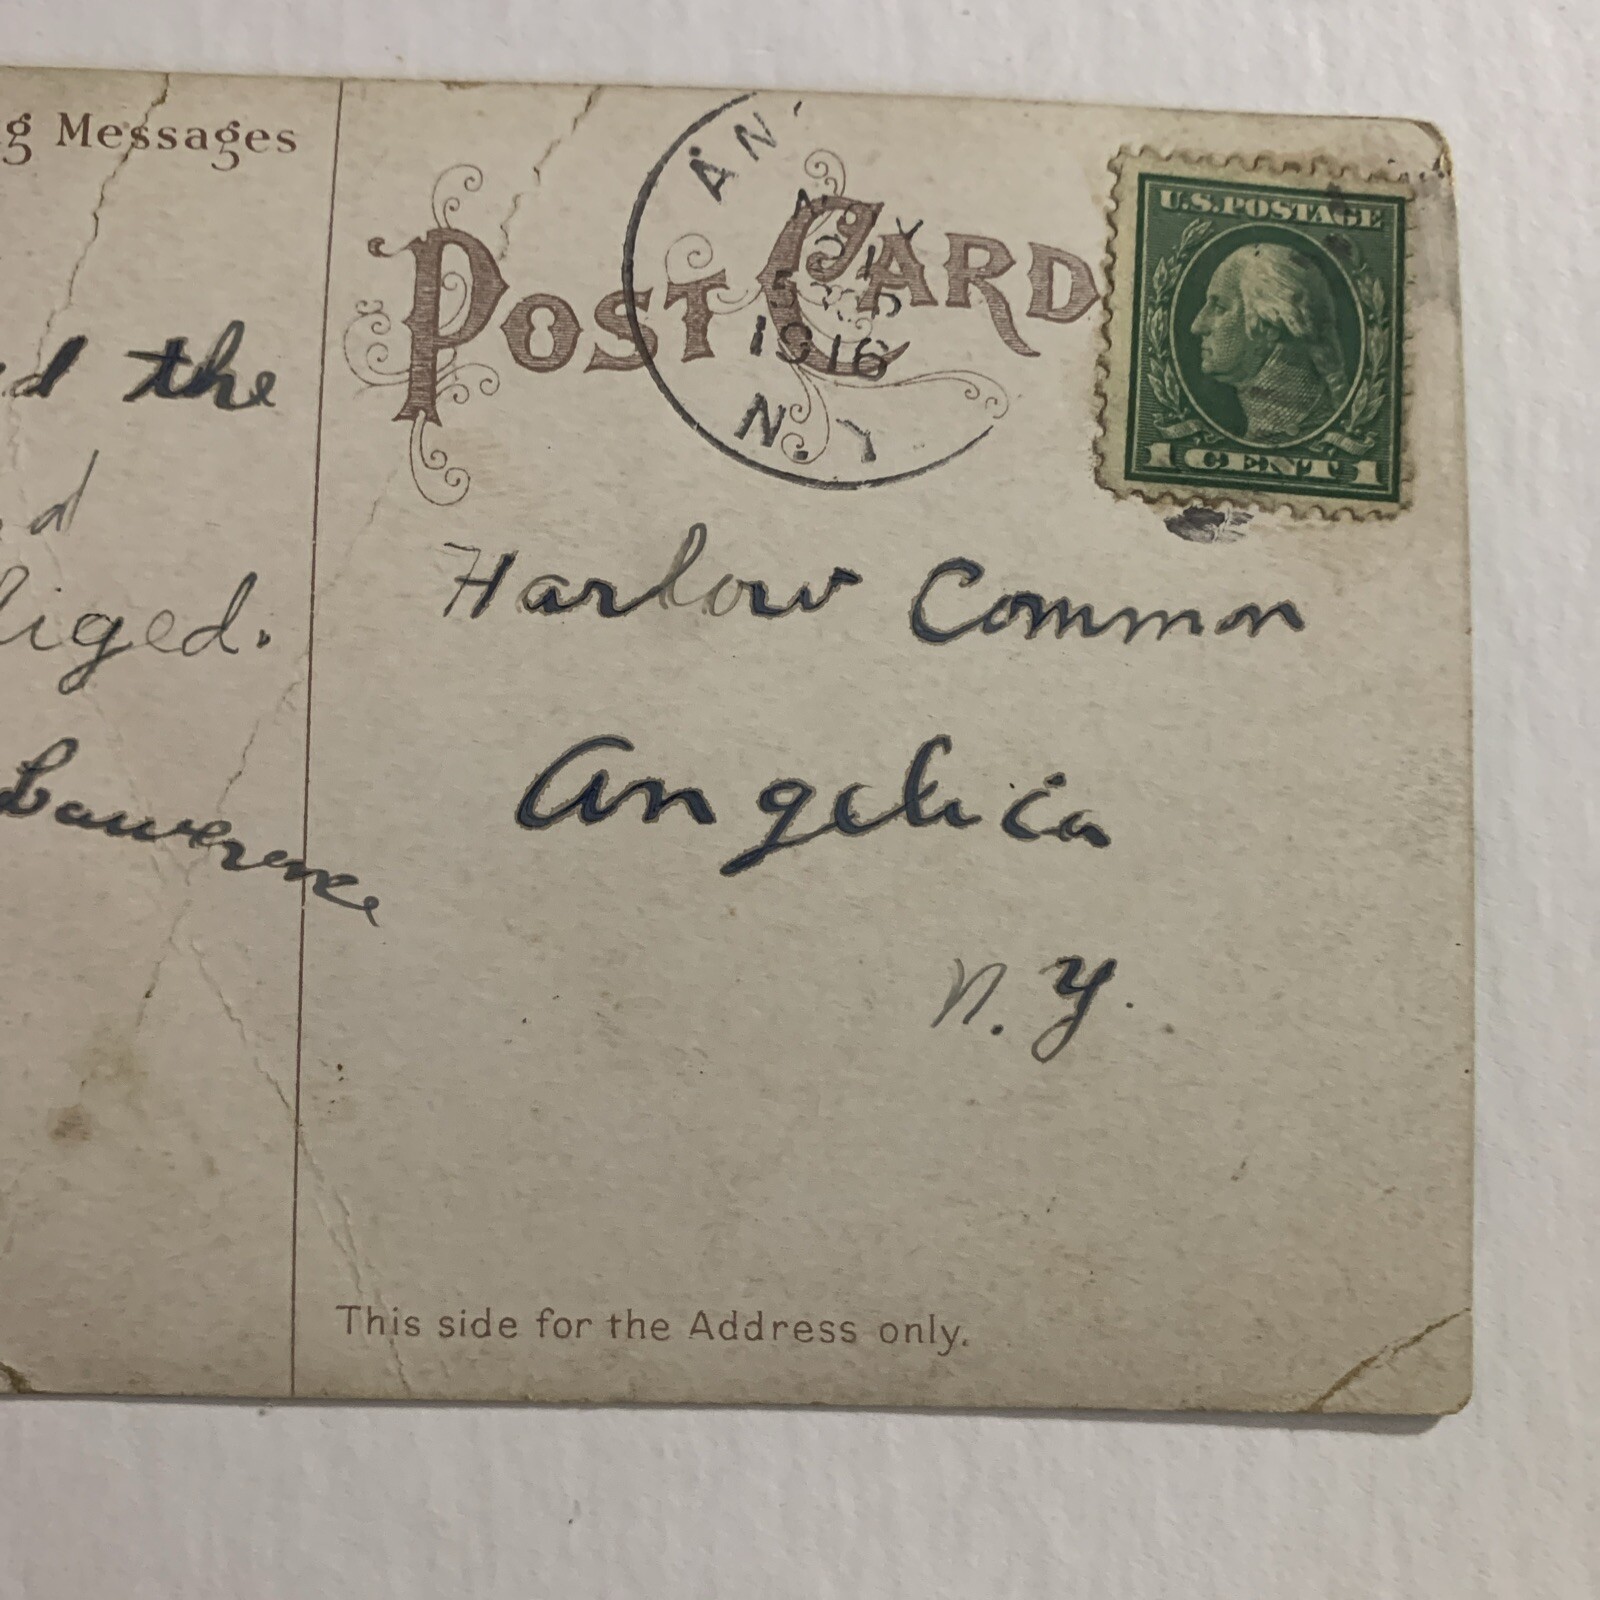 g Messages
d the
d
liged.
Lawrence
POST CARD
AN
1916
N.Y
U.S. POSTAGE
1 CENT 1
Harlow Common
Angelica
N. Y.
This side for the Address only.